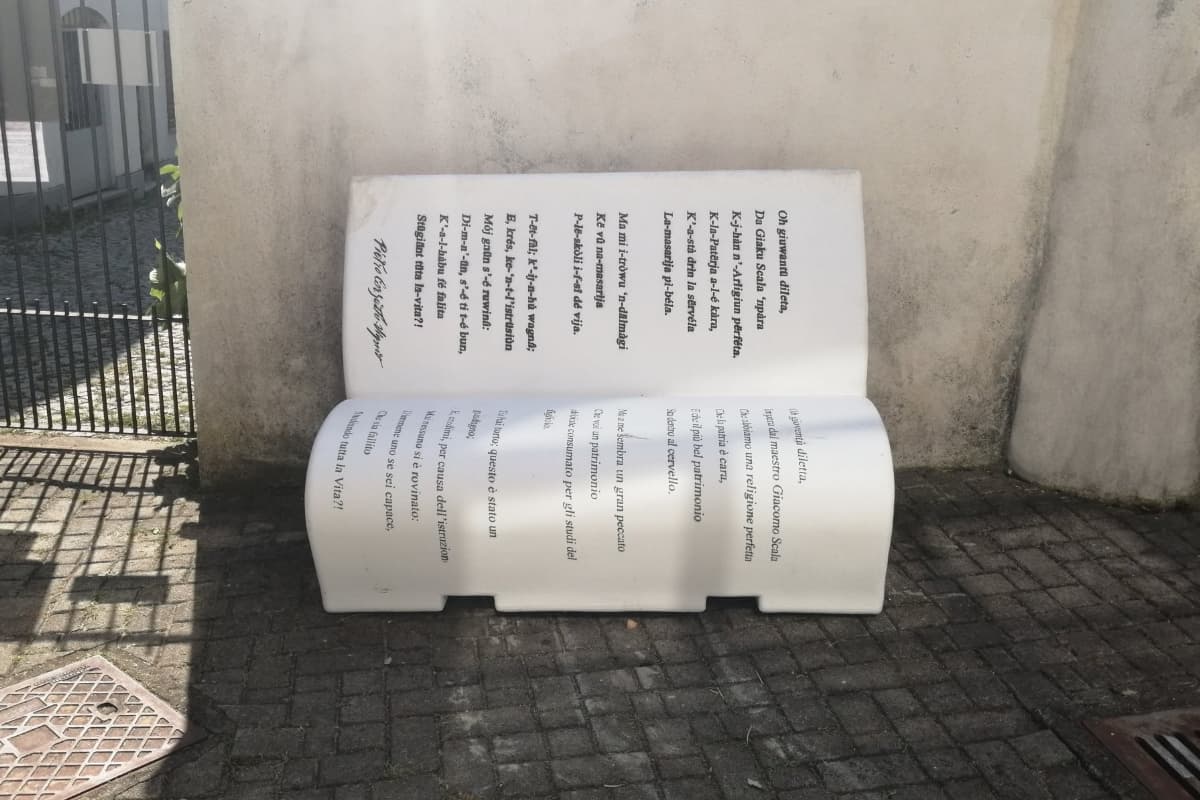 Oh giuwantü dileta,
Da Giaku Scala 'npàra
K-j-hàn n'-Arligiun përféta.
K-la-Patërja a-l-é kàra,
K'-a-stà drin la sërvéla
La-masarija pi-béla.
Ma mi i-tròwu 'n-dalmàgi
Kë vü na-masarija
P-lë-skòli i-f-sî dé vija.
T-ët-fàl; k'-ij-n-hù wagnà;
E, krés, ke-'n-t-l'istrüsiùn
Mój gnün s'-é ruwinà:
Di-m-n'-ün, s'-é ti t-é bun,
K'-a-l-hàbu fé falita
Stügiànt tüta la-vita?!
Oh gioventù diletta,
Impara dal maestro Giacomo Scala
Che abbiamo una religione perfetta
Che la patria è cara,
E che il più bel patrimonio
Sta dentro al cervello.
Ma a me sembra un gran peccato
Che voi un patrimonio
abbiate consumato per gli studi del
figliolo.
Tu hai torto; questo è stato un
guadagno;
E, credimi, per causa dell'istruzion
Mai nessuno si è rovinato:
Dimmene uno se sei capace,
Che sia fallito
Studiando tutta la Vita?!